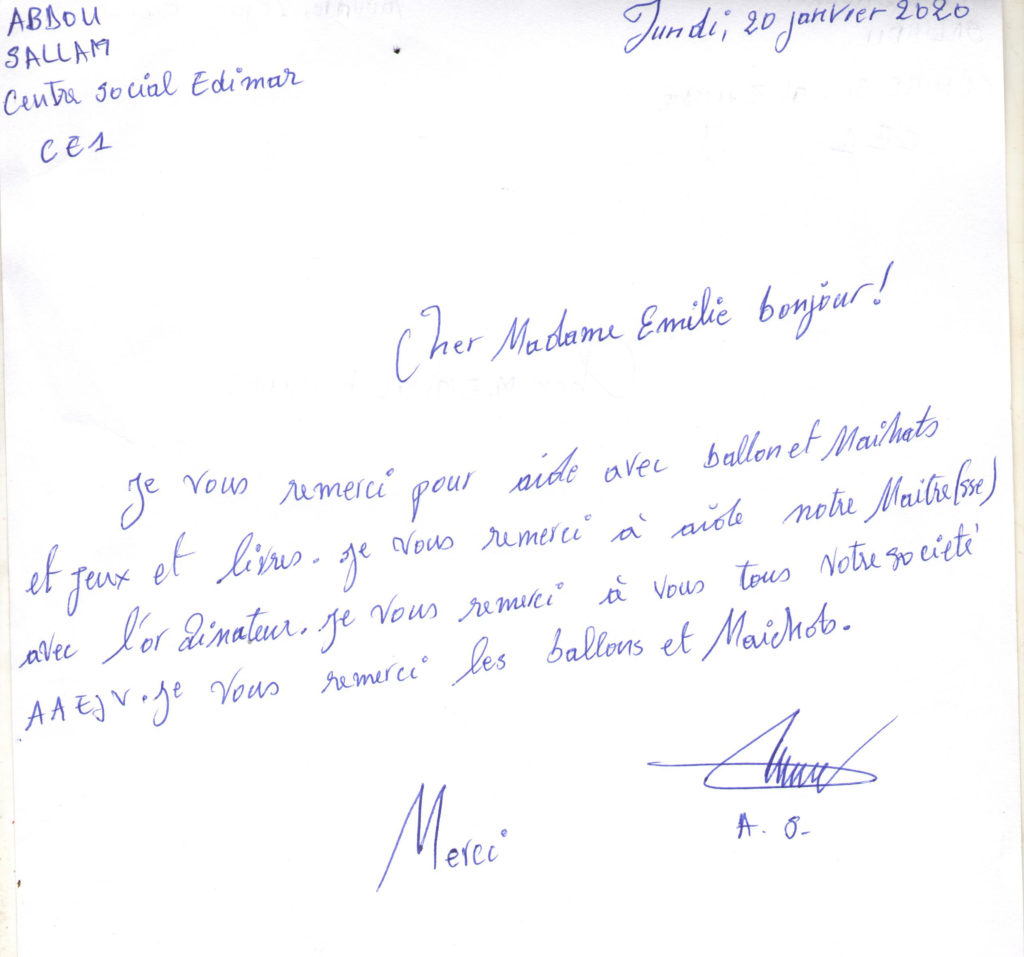 ABDOU
SALLAM
Centre social Edimar
CE1
Lundi, 20 janvier 2020
Cher Madame Emilie bonjour!
Je vous remerci pour aide avec ballon et
et jeux et livres. Je vous remerci à aide notre Maitre(sse)
avec l'ordinateur. Je vous remerci à vous tous votre societé
AAEJV. Je vous remerci les ballons et
Merci
A. S-